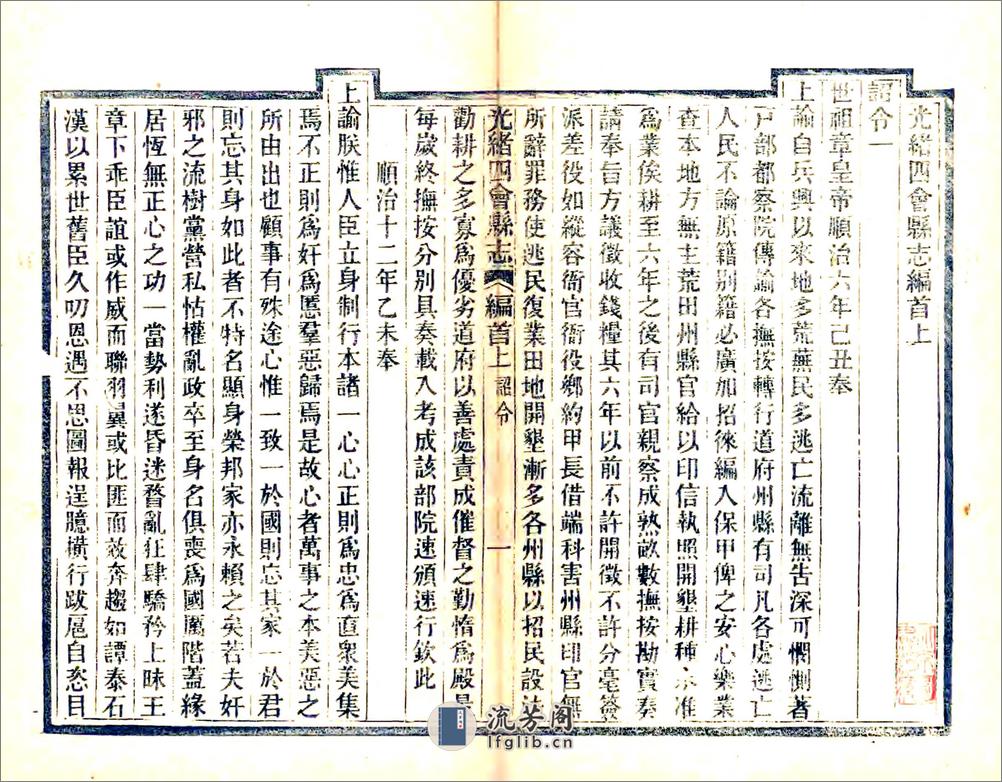 光緒四會縣志編首上
詔令一
世祖章皇帝順治六年己丑奉
上諭自兵興以來地多荒蕪民多逃亡流離無吿深可憫惻著
戸部都察院傳諭各撫按轉行道府州縣有司凡各處逃亡
人民不論原籍别籍必廣加招徠編入保甲俾之安心樂業
查本地方無主荒田州縣官給以印信執照開墾耕種永准
爲業俟耕至六年之後有司官親察成熟畝數撫按勘實奏
請奉旨方議徵收錢糧其六年以前不許開徵不許分毫僉
派差役如縱容衙官衙役鄉約甲長借端科害州縣印官無
所辭罪務使逃民復業田地開墾漸多各州縣以招民設法
光緒四會縣志 編首上 詔令 一
勸耕之多寡爲優劣道府以善處責成催督之勤惰爲殿最
每歲終撫按分别具奏載入考成該部院速頒速行欽此
順治十二年乙未奉
上諭朕惟人臣立身制行本諸一心心正則爲忠爲直衆美集
焉不正則爲奸爲慝羣惡歸焉是故心者萬事之本美惡之
所由出也顧事有殊途心惟一致一於國則忘其家一於君
則忘其身如此者不特名顯身榮邦家亦永賴之矣若夫奸
邪之流樹黨營私怙權亂政卒至身名俱喪爲國厲階蓋緣
居恆無正心之功一當勢利遂昏迷瞀亂狂肆驕矜上昧王
章下乖臣誼或作威而聯羽翼或比匪而效奔趨如譚泰石
漢以累世舊臣久叨恩遇不思圖報逞臆橫行跋扈自恣目
流芳閣
lfglib.cn